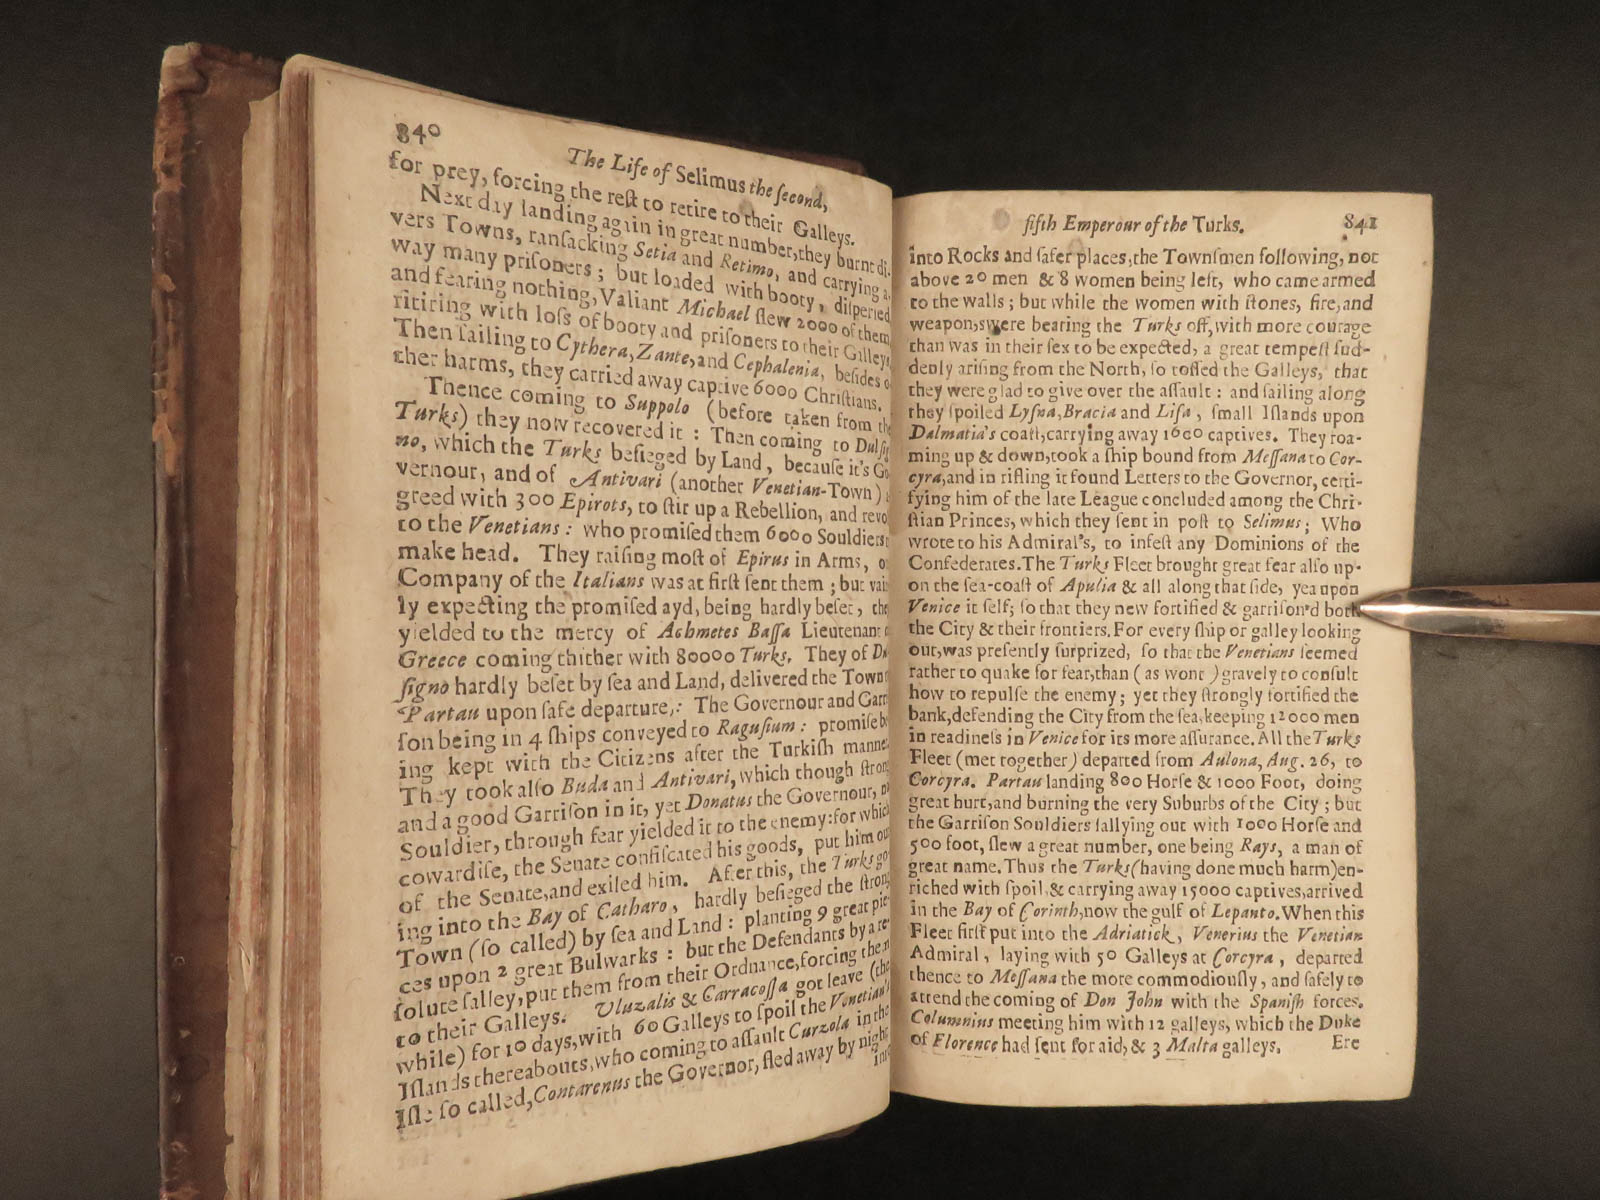 840
The Life of Selimus the ſecond,
for prey, forcing the reſt to retire to their Galleys.
Next day landing again in great number, they burnt di-
vers Towns, ranſacking Setia and Retimo, and carrying a-
way many priſoners; but loaded with booty, diſperſed
and fearing nothing, Valiant Michael ſlew 2000 of them
ritiring with loſs of booty and priſoners to their Galleys
Then ſailing to Cythera, Zante, and Cephalenia, beſides o
ther harms, they carried away captive 6000 Chriſtians.
Thence coming to Suppolo (before taken from the
Turks) they now recovered it: Then coming to Dulſig
no, which the Turks beſieged by Land, because it's Go
vernour, and of Antivari (another Venetian-Town)
greed with 300 Epirots, to ſtir up a Rebellion, and revo
to the Venetians: who promiſed them 6000 Souldiers
make head. They raiſing moſt of Epirus in Arms,
Company of the Italians was at firſt ſent them; but vai
ly expecting the promiſed ayd, being hardly beſet, the
yielded to the mercy of Achmetes Baſſa Lieutenant
Greece coming thither with 80000 Turks. They of Du
ſigno hardly beſet by ſea and Land, delivered the Town
Partau upon ſafe departure,: The Governour and Garr
ſon being in 4 ſhips conveyed to Raguſium: promiſe b
ing kept with the Citizens after the Turkiſh manner
They took alſo Buda and Antivari, which though ſtrong
and a good Garriſon in it, yet Donatus the Governour, no
Souldier, through fear yielded it to the enemy: for which
cowardiſe, the Senate confiſcated his goods, put him out
of the Senate, and exiled him. After this, the Turks go
ing into the Bay of Catharo, hardly beſieged the ſtrong
Town (ſo called) by ſea and Land: planting 9 great pie-
ces upon 2 great Bulwarks: but the Defendants by a re-
ſolute ſalley, put them from their Ordnance, forcing them
to their Galleys. Vluzalis & Carracoſſa got leave (the
while) for 10 days, with 60 Galleys to ſpoil the Venetian's
Iſlands thereabouts, who coming to aſſault Curzola in the
Iſle ſo called, Contarenus the Governor, fled away by night
into
fifth Emperour of the Turks.
841
into Rocks and ſafer places, the Townſmen following, not
above 20 men & 8 women being left, who came armed
to the walls; but while the women with ſtones, fire, and
weapons, were bearing the Turks off, with more courage
than was in their ſex to be expected, a great tempeſt ſud-
denly ariſing from the North, ſo toſſed the Galleys, that
they were glad to give over the aſſault: and ſailing along
they ſpoiled Lyſna, Bracia and Liſa, ſmall Iſlands upon
Dalmatia's coaſt, carrying away 1600 captives. They roa-
ming up & down, took a ſhip bound from Meſſana to Cor-
cyra, and in rifling it found Letters to the Governor, certi-
fying him of the late League concluded among the Chri-
ſtian Princes, which they ſent in poſt to Selimus; Who
wrote to his Admiral's, to infeſt any Dominions of the
Confederates. The Turks Fleet brought great fear alſo up-
on the ſea-coaſt of Apulia & all along that ſide, yea upon
Venice it ſelf; ſo that they new fortified & garriſon'd both
the City & their frontiers. For every ſhip or galley looking
out, was preſently ſurprized, ſo that the Venetians ſeemed
rather to quake for fear, than (as wont) gravely to conſult
how to repulſe the enemy; yet they ſtrongly fortified the
bank, defending the City from the ſea, keeping 12000 men
in readineſs in Venice for its more aſſurance. All the Turks
Fleet (met together) departed from Aulona, Aug. 26, to
Corcyra. Partau landing 800 Horſe & 1000 Foot, doing
great hurt, and burning the very Suburbs of the City; but
the Garriſon Souldiers ſallying out with 1000 Horſe and
500 foot, ſlew a great number, one being Rays, a man of
great name. Thus the Turks (having done much harm) en-
riched with ſpoil, & carrying away 15000 captives, arrived
in the Bay of Corinth, now the gulf of Lepanto. When this
Fleet firſt put into the Adriatick, Venerius the Venetian
Admiral, laying with 50 Galleys at Corcyra, departed
thence to Meſſana the more commodiouſly, and ſafely to
attend the coming of Don John with the Spaniſh forces.
Columnius meeting him with 12 galleys, which the Duke
of Florence had ſent for aid, & 3 Malta galleys.
Ere